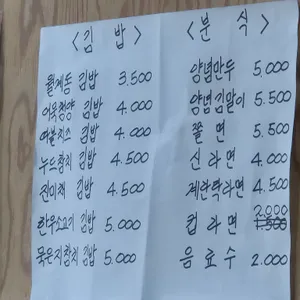 <김 밥>
월계동 김밥 3.500
어묵청양 김밥 4.000
더블치즈 김밥 4.000
누드참치 김밥 4.500
진미채 김밥 4.500
한우소고기 김밥 5.000
묵은지참치 김밥 5.000
<분 식>
양념만두 5.000
양념김말이 5.500
쫄 면 5.500
신 라면 4.000
계란떡라면 4.500
컵 라면 2.000 1.500
음 료 수 2.000